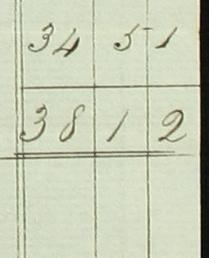 34 5 1
38 1 2